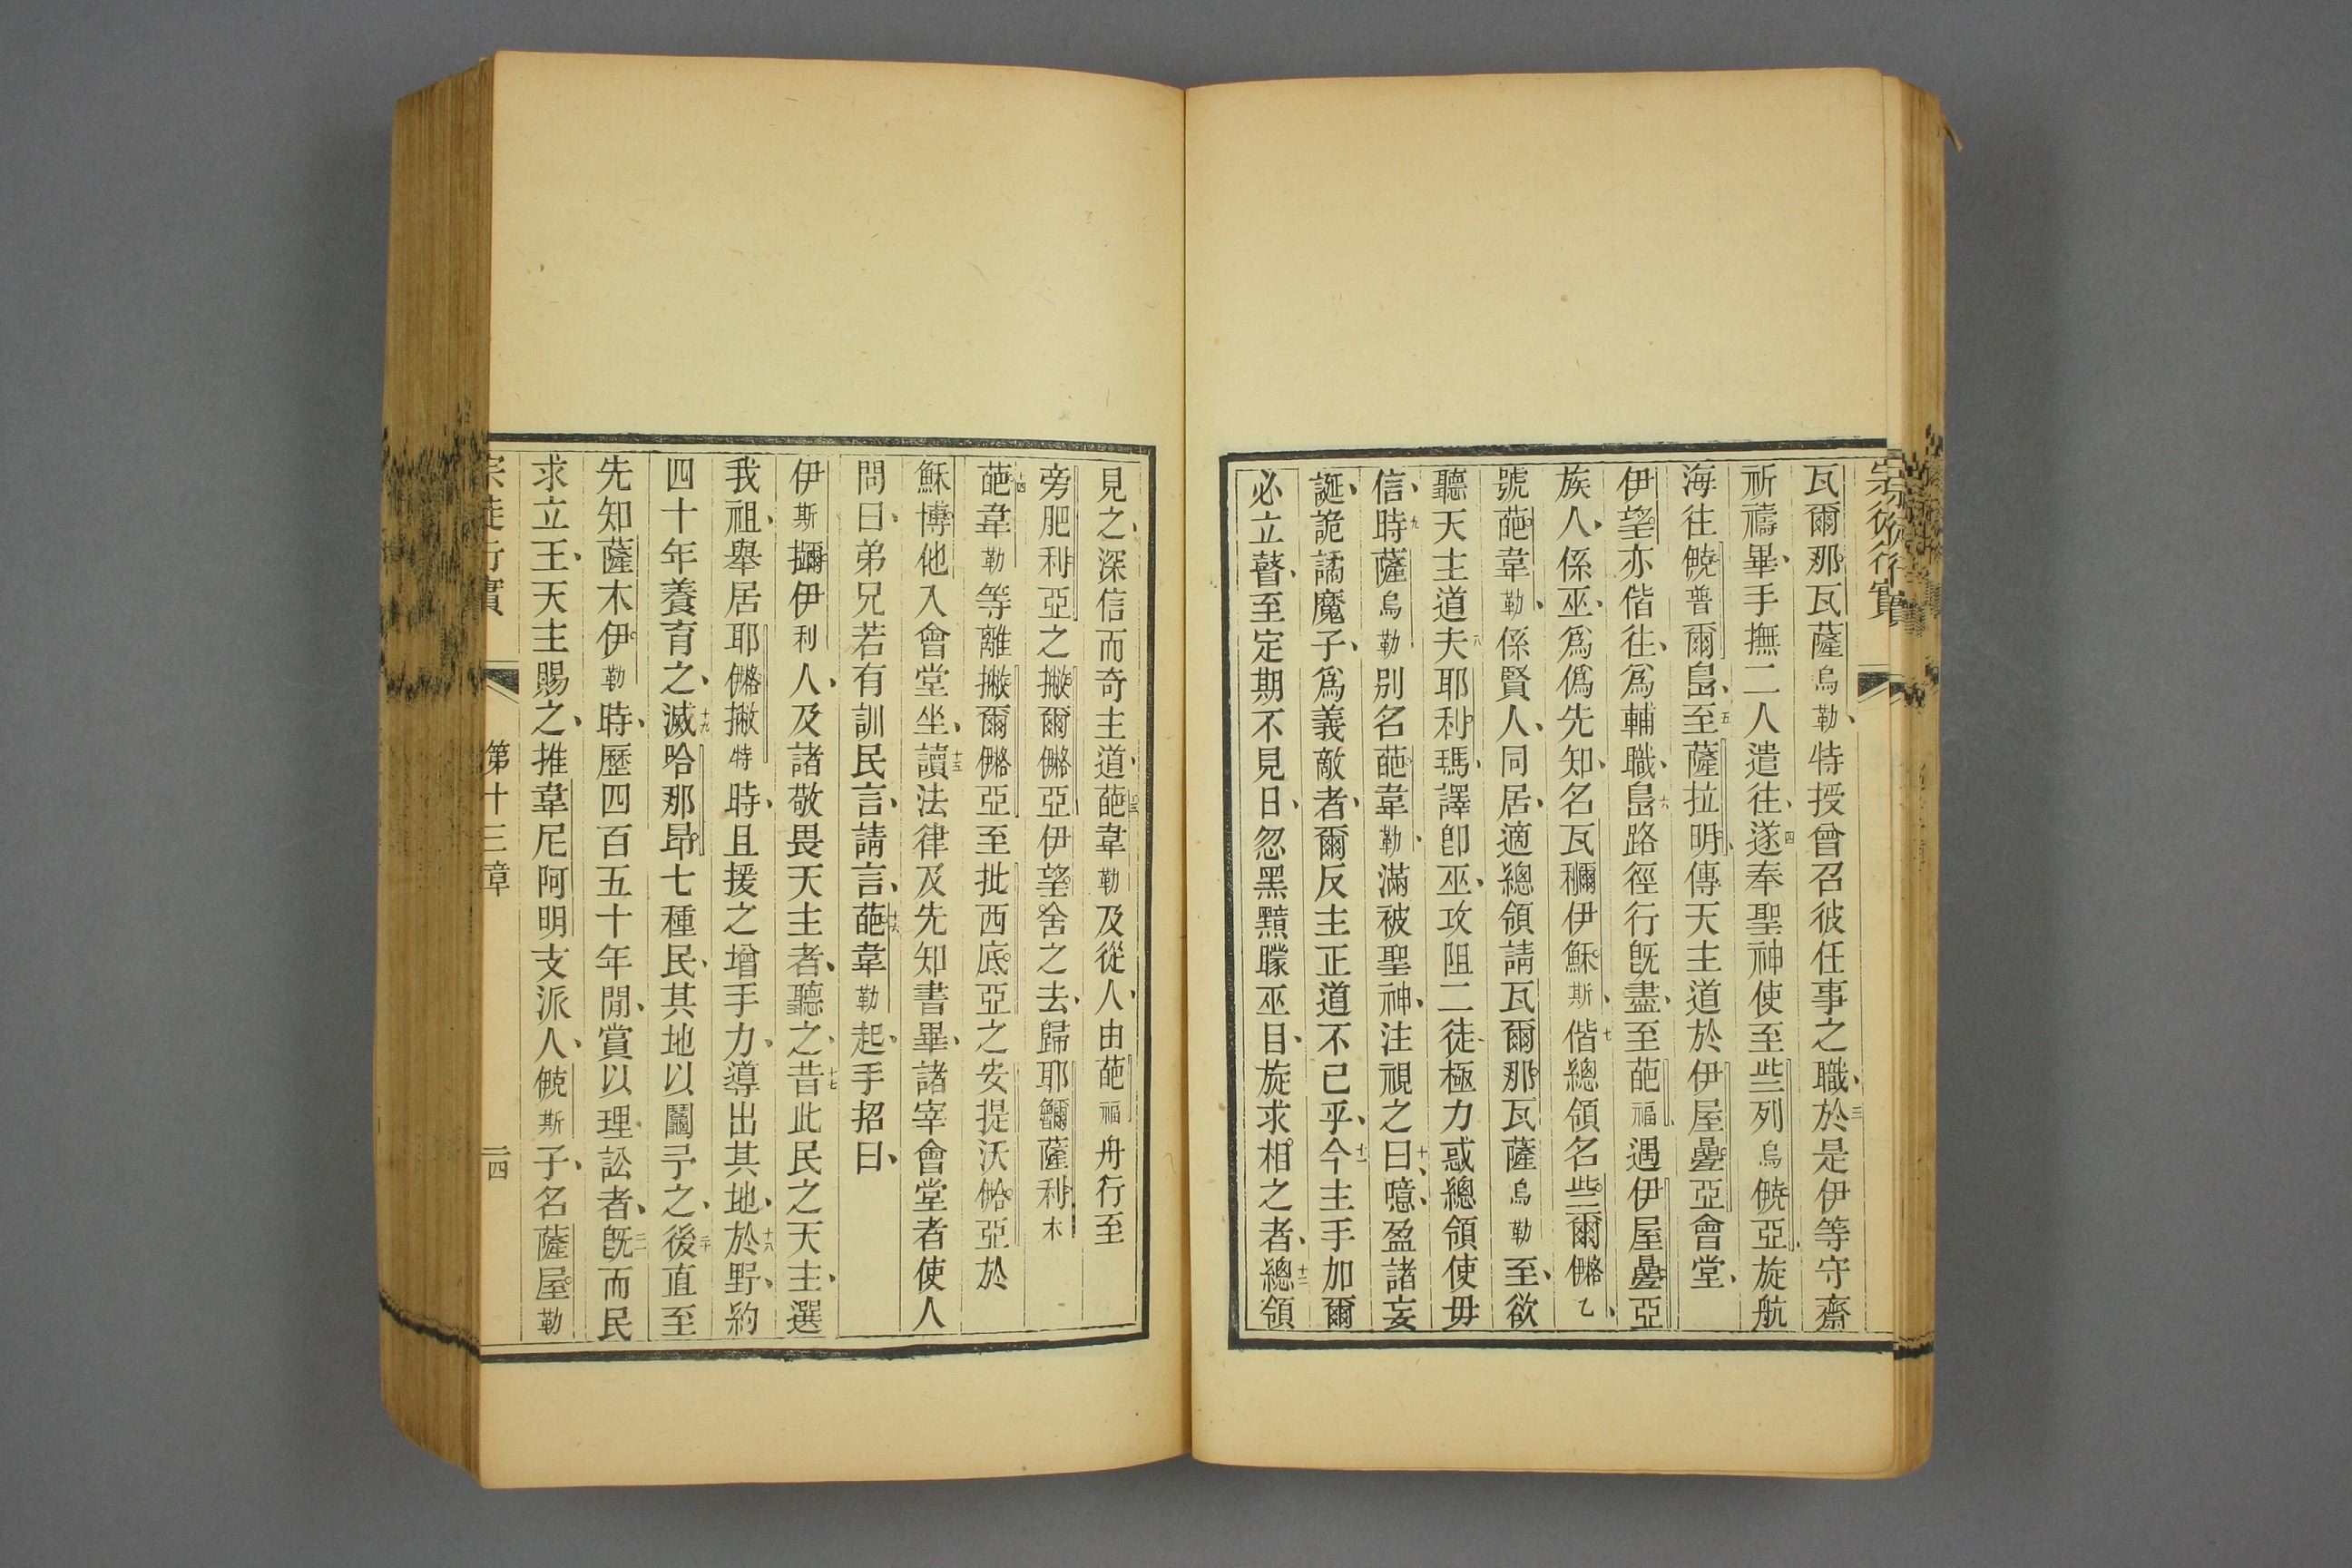 宗徒行實
瓦爾那瓦薩烏勒、特授曾召彼任事之職、三於是伊等守齋
祈禱畢、手撫二人遣往、四遂奉聖神使至些列烏䠶亞、旋航
海往普爾島、五至薩拉明、傳天主道於伊屋疊亞會堂、
伊望亦偕往、爲輔職、六島路徑行旣盡、至葩福、遇伊屋疊亞
族人、係巫、爲僞先知、名瓦伊穌斯、七偕總領名些爾乙、
號葩韋勒、係賢人、同居、適總領請瓦爾那瓦薩烏勒至、欲
聽天主道、八夫耶利瑪、譯卽巫、攻阻二徒、極力惑總領使毋
信、九時薩烏勒別名葩韋勒、滿被聖神、注視之曰、十噫、盈諸妄
誕、詭譎魔子、爲義敵者、爾反主正道不已乎、十一今主手加爾
必立瞽、至定期不見日、忽黑黯矇巫目、旋求相之者、十二總領
見之、深信而奇主道、十三葩韋勒及從人、由葩福舟行至
旁肥利亞之撇爾亞、伊望舍之去、歸耶薩利木
十四葩韋勒等離撇爾亞、至批西底亞之安提沃亞、於
穌博他入會堂坐、十五讀法律及先知書畢、諸宰會堂者使人
問曰、弟兄若有訓民言、請言、十六葩韋勒起、手招曰、
伊斯伊利人、及諸敬畏天主者、聽之、十七昔此民之天主、選
我祖、舉居耶撇特時、且援之增手力、導出其地、十八於野、約
四十年養育之、十九滅哈那昂七種民、其地以鬮予之、二十後直至
先知薩木伊勒時、歷四百五十年閒、賞以理訟者、二一旣而民
求立王、天主賜之、推韋尼阿明支派人、斯子、名薩屋勒
宗徒行實 第十三章 二四